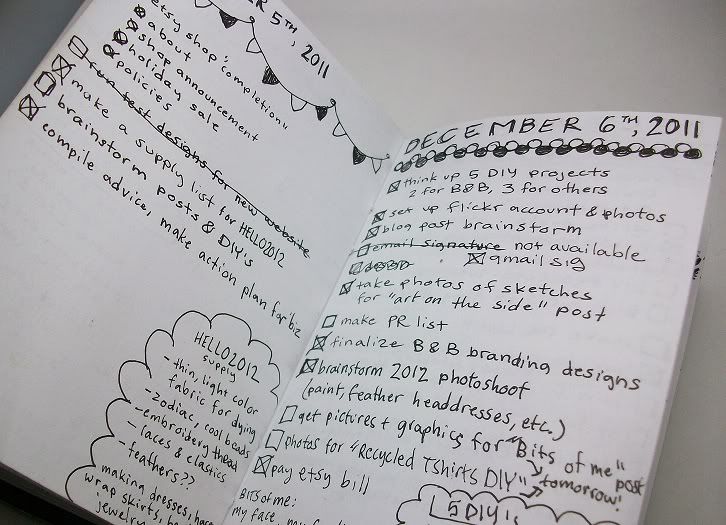 R 5TH, 2011
etsy shop "completion"
about
shop announcement
holiday sale
policies
run test designs for new website
make a supply list for HELLO2012
brainstorm posts & DIY's
compile advice, make action plan for biz
HELLO2012
supply
- thin, light color
fabric for dying
- zodiac, cool beads
- embroidery thread
- laces & elastics
- feathers??
making dresses,
wrap skirts,
jewelry
DECEMBER 6TH, 2011
think up 5 DIY projects
2 for B&B, 3 for others
set up flickr account & photos
blog post brainstorm
email signature not available
gmail sig
take photos of sketches
for "art on the side" post
make PR list
finalize B&B branding designs
brainstorm 2012 photoshoot
(paint, feather headdresses, etc.)
get pictures + graphics for "Bits of me" post
photos for "Recycled Tshirts DIY" tomorrow!
pay etsy bill
BITS of me:
my face,
5 DIY's: